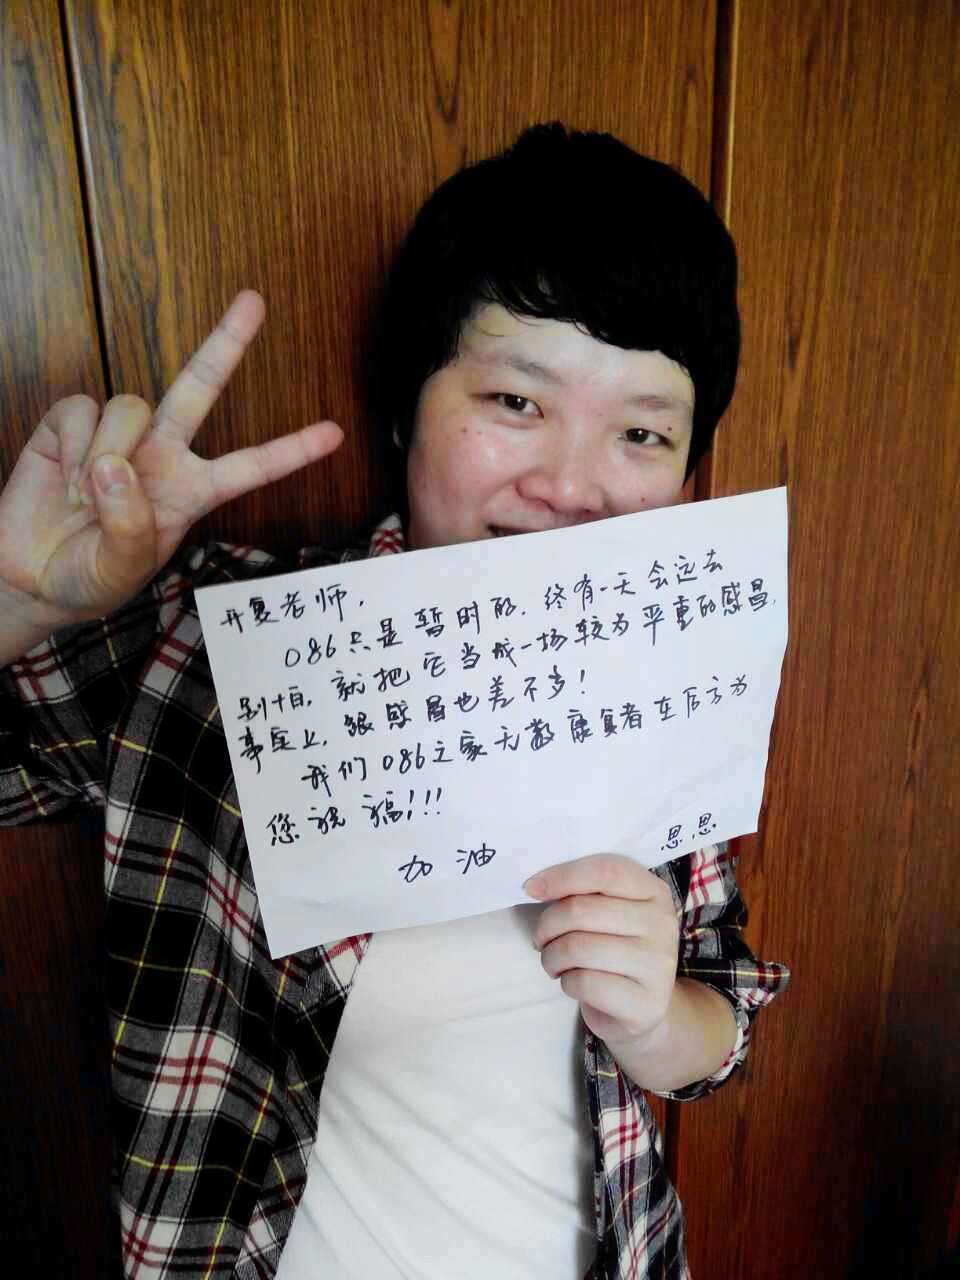 开复老师，
086只是暂时的，终有一天会远去
别怕，就把它当成一场较为严重的感冒，
事实上，跟感冒也差不多！
我们086之家无数康复者在后方为
您祝福！！！
加油 思思